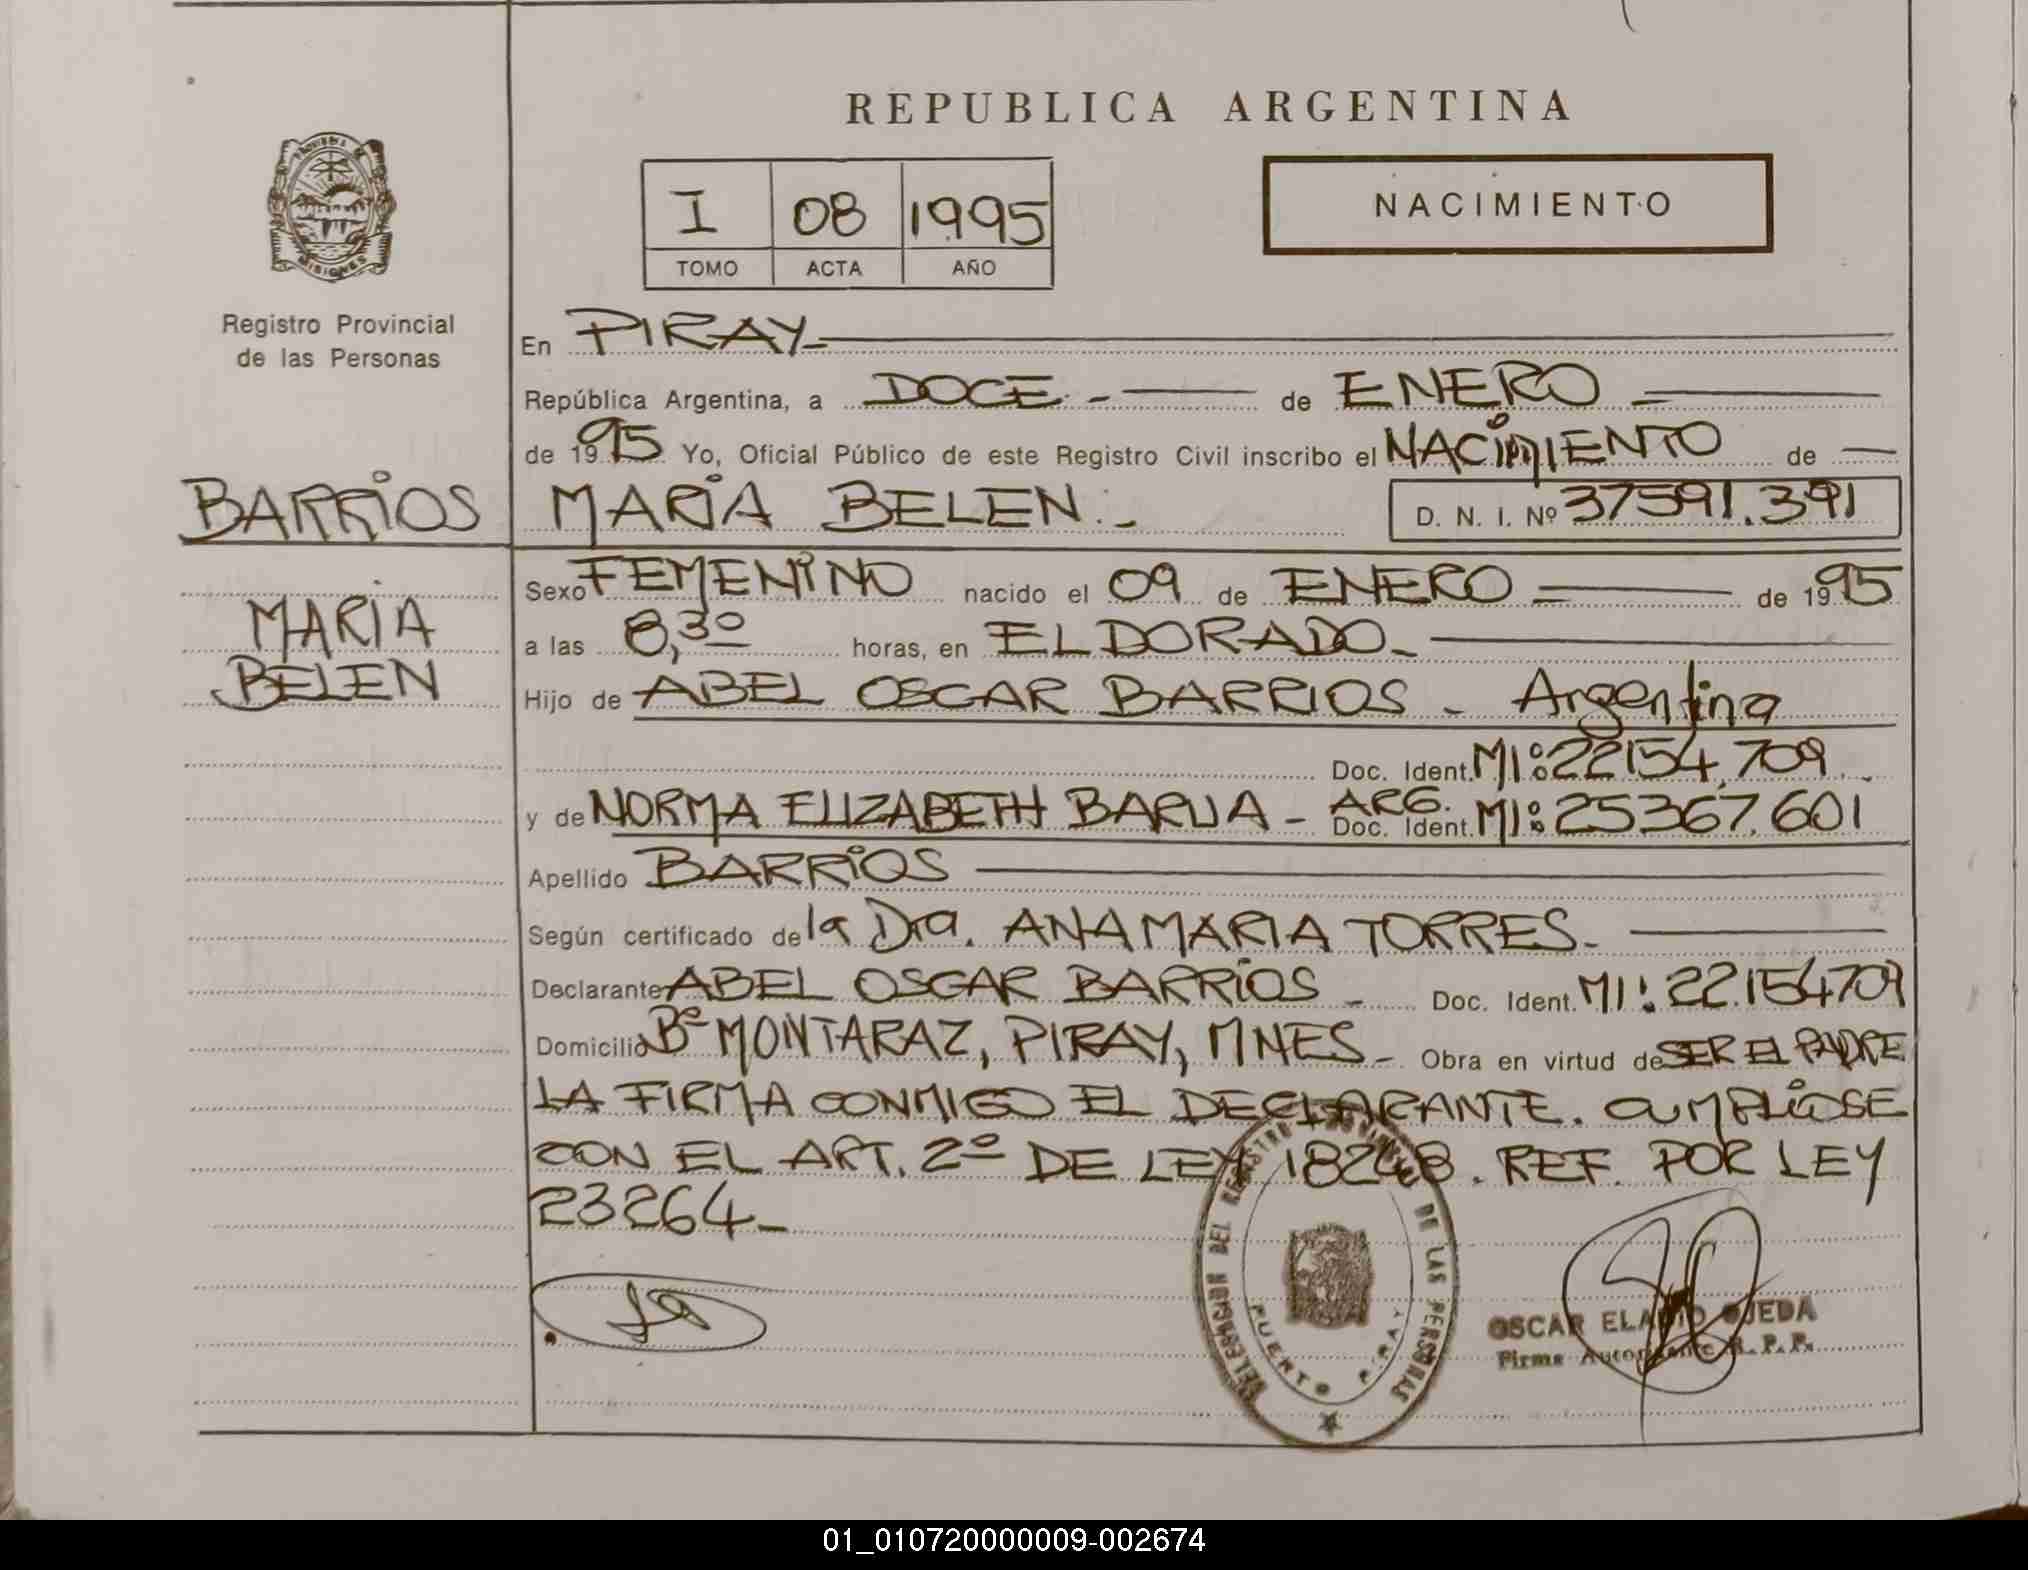 REPUBLICA ARGENTINA
I 08 1995
TOMO ACTA AÑO
NACIMIENTO
MISIONES
Registro Provincial
de las Personas
BARRIOS
MARIA
BELEN
En PIRAY
República Argentina, a DOCE.- de ENERO
de 1995 Yo, Oficial Público de este Registro Civil inscribo el NACIMIENTO de
MARIA BELEN.- D. N. I. Nº 37591.391
Sexo FEMENINO nacido el 09 de ENERO de 1995
a las 8,30 horas, en ELDORADO-
Hijo de ABEL OSCAR BARRIOS - Argentina
Doc. Ident. MI: 22154.709
y de NORMA ELIZABETH BARUA - ARG. Doc. Ident. MI: 25367.601
Apellido BARRIOS
Según certificado de la Dra. ANA MARIA TORRES-
Declarante ABEL OSCAR BARRIOS - Doc. Ident. MI: 22.154709
Domicilio Bº MONTARAZ, PIRAY, MNES- Obra en virtud de SER EL PADRE
LA FIRMA CONMIGO EL DECLARANTE. CUMPLIOSE
CON EL ART. 2º DE LEY 18248. REF. POR LEY
23264-
DELEGACION DEL REGISTRO PROVINCIAL DE LAS PERSONAS
PUERTO PIRAY
OSCAR ELADIO OJEDA
Firma Autorizante R.P.P.
01_010720000009-002674